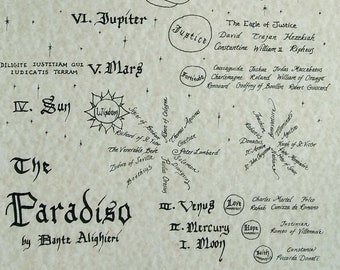 VI. Jupiter
Justice
The Eagle of Justice
David Trajan Hezekiah
Constantine William II Ripheus
DILIGITE JUSTITIAM QUI
IUDICATIS TERRAM
V. Mars
Fortitude
Cacciaguida Joshua Judas Maccabaeus
Charlemagne Roland William of Orange
Renouard Godfrey of Bouillon Robert Guiscard
IV. Sun
Wisdom
Richard of St Victor
The Venerable Bede
Isidore of Seville
Boethius
Peter Lombard
The
Paradiso
by Dante Alighieri
III. Venus
Love
Charles Martel Folco
Rahab Cunizza da Romano
II. Mercury
Hope
Justinian
Romeo of Villeneuve
I. Moon
Faith
Constance
Piccarda Donati